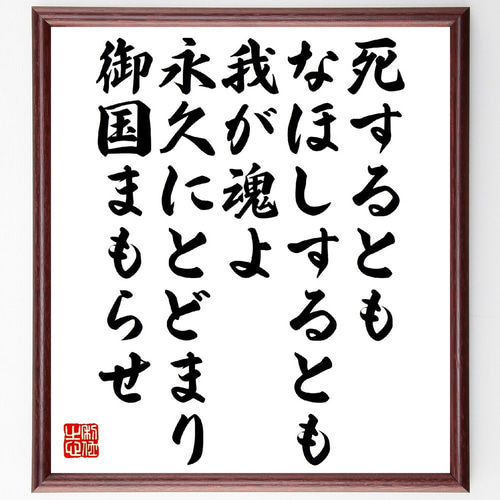 死するとも
なほしするとも
我が魂よ
永久にとどまり
御国まもらせ